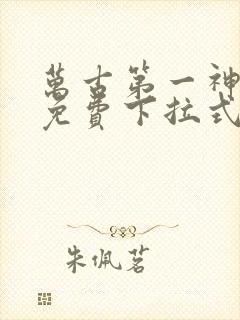 萬古第一神
免費下拉式
朱佩茗